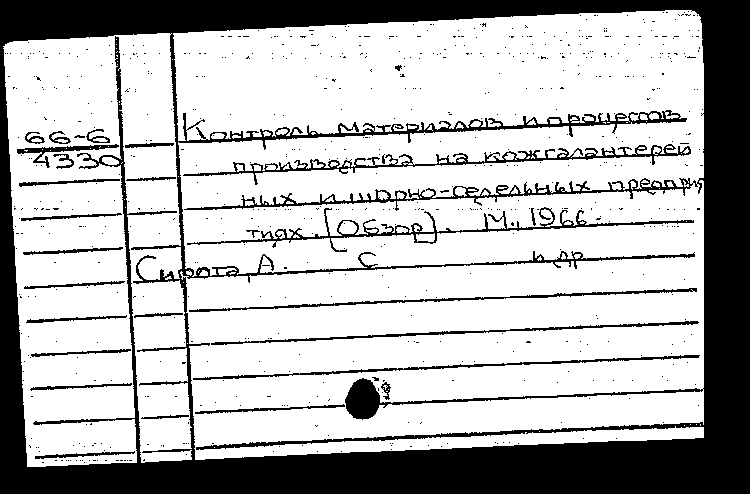 66-6
4330
Контроль материалов и процессов
производства на кожгалантерей
ных и шорно-седельных предприя
тиях. [Обзор]. М., 1966.
Сирота, А. С и др